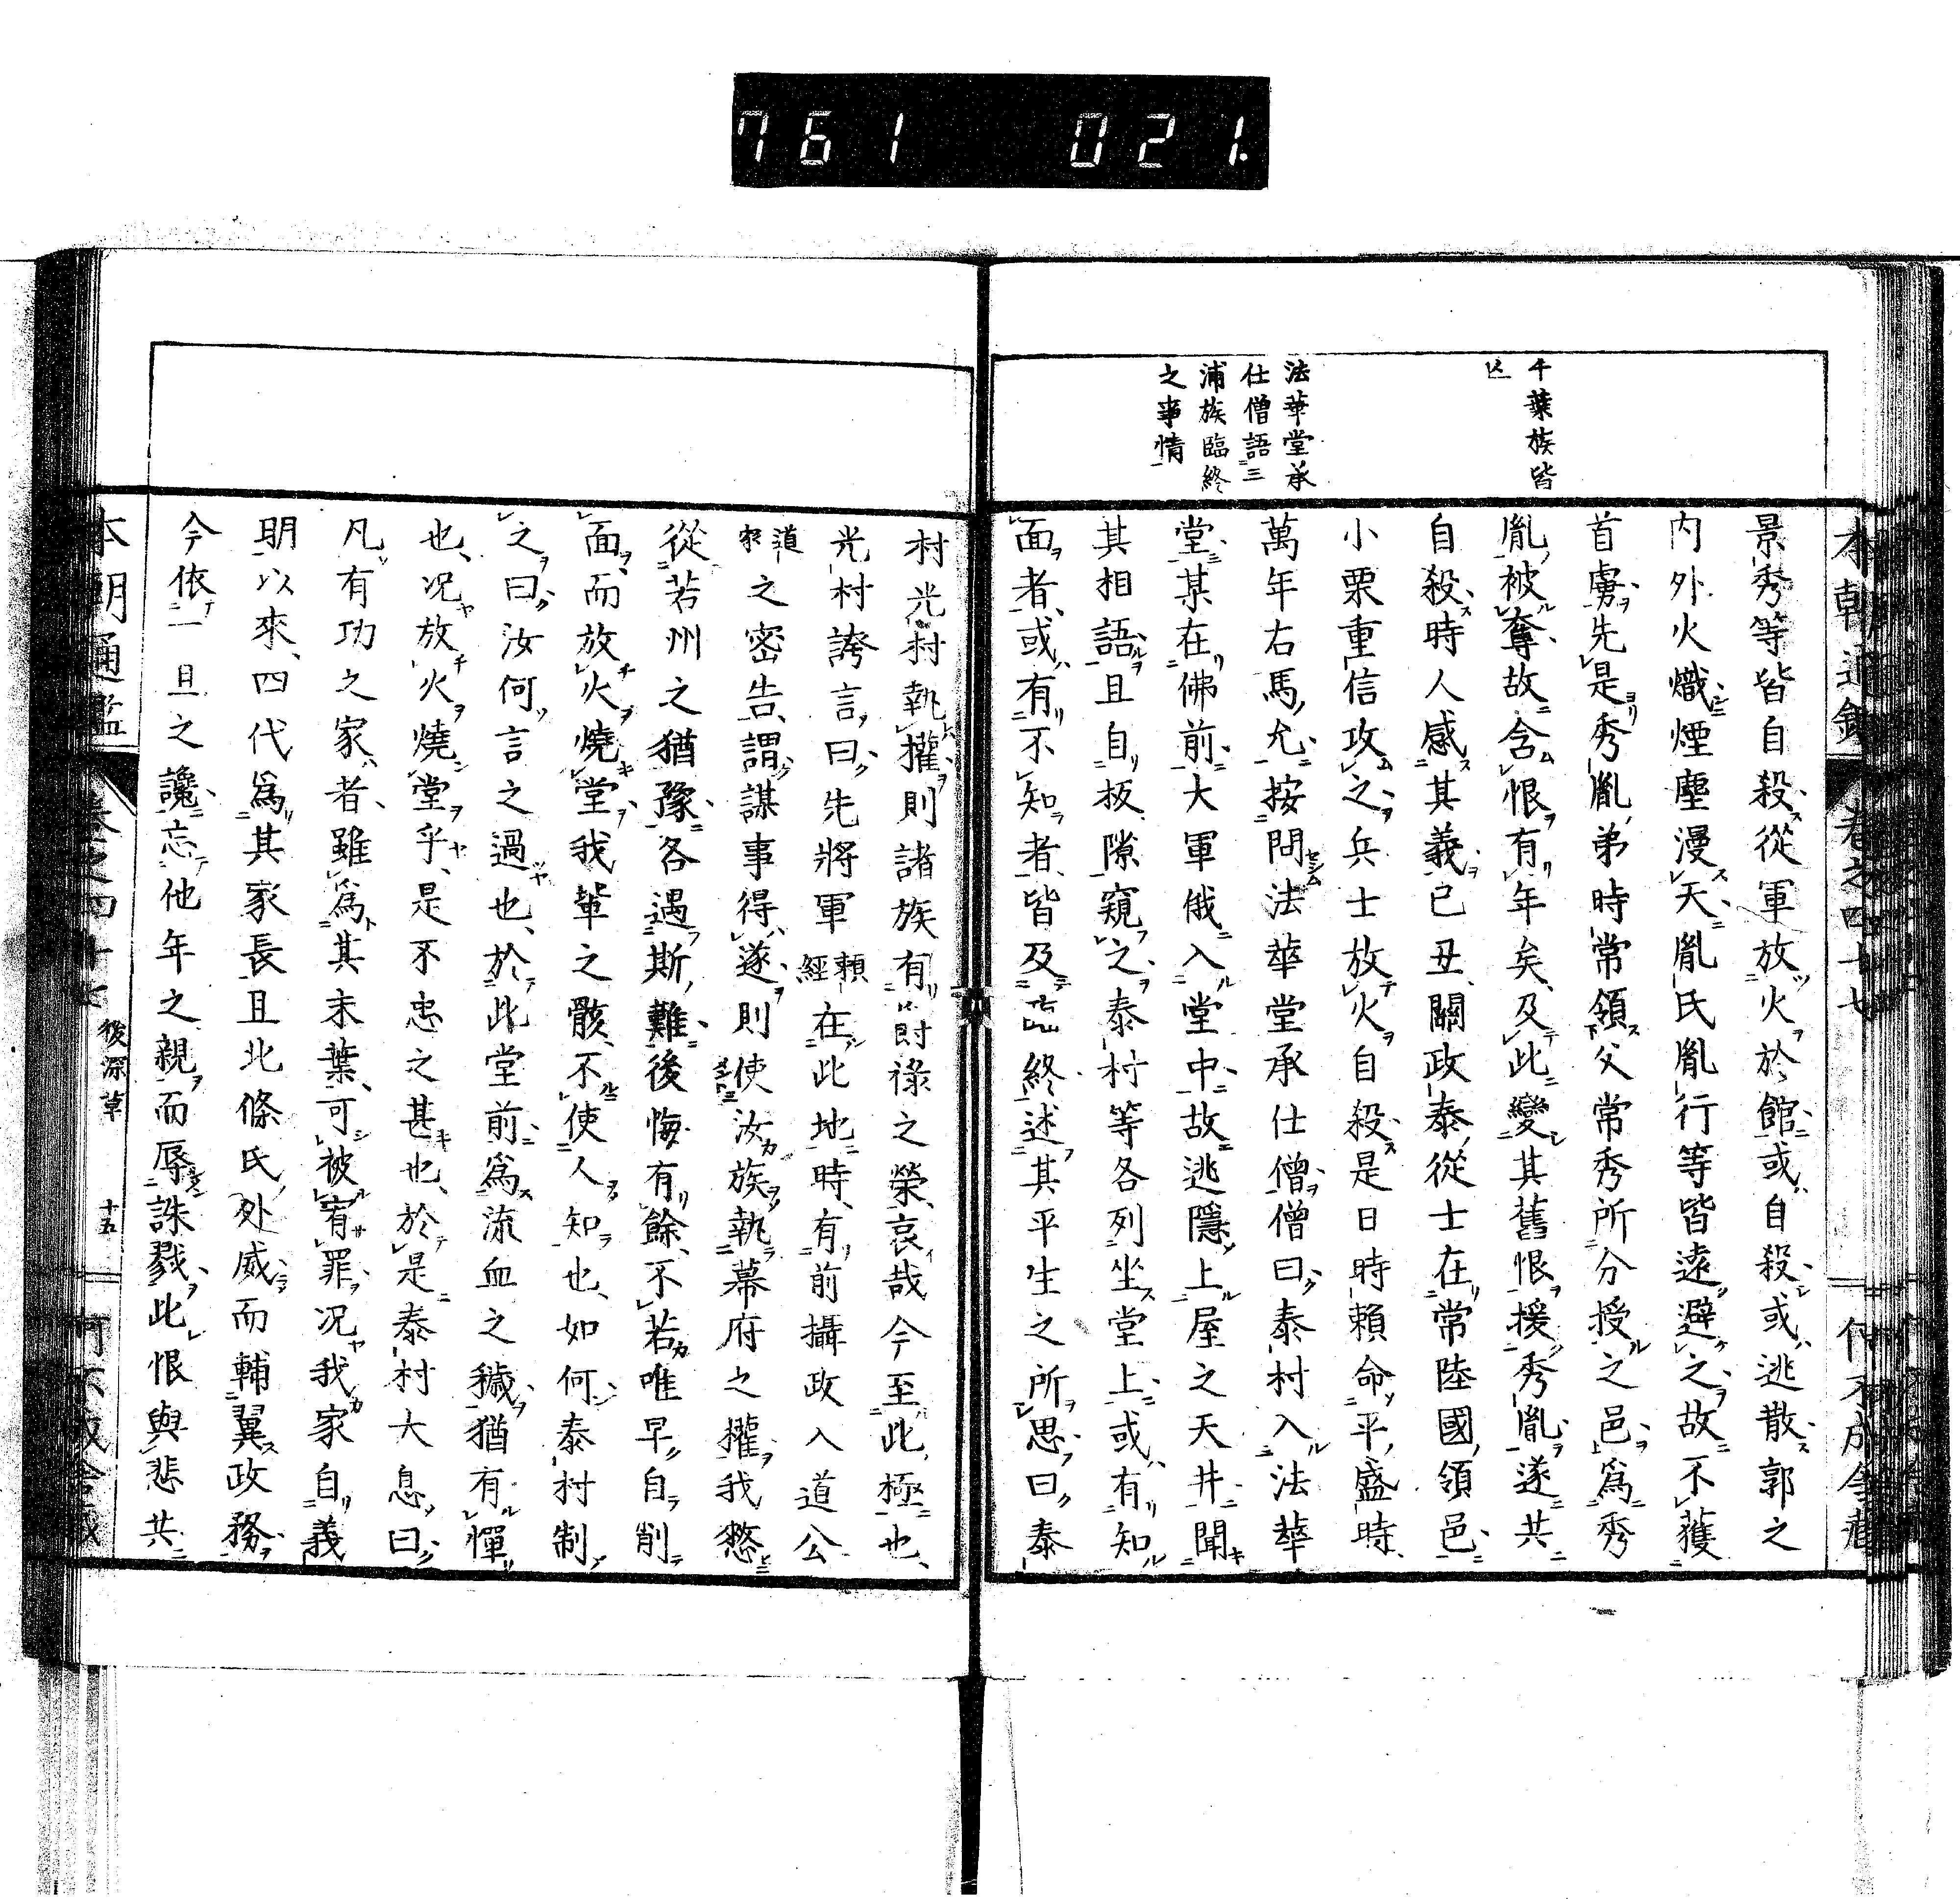 761 021.
千葉族皆
亡
法華堂承
仕僧語三
浦族臨終
之事情
景秀等皆自殺從軍放火於館或自殺或逃散郭之
内外火熾煙塵漫天胤氏胤行等皆遠避之故不獲
首虜先是秀胤弟時常領父常秀所分授之邑爲秀
胤被奪故含恨有年矣及此變其舊恨援秀胤遂共
自殺時人感其義已丑關政泰從士在常陸國領邑
小栗重信攻之兵士放火自殺是日時頼命平盛時
萬年右馬允按問法華堂承仕僧僧曰泰村入法華
堂某在佛前大軍俄入堂中故逃隱上屋之天井聞
其相語且自板隙窺之泰村等各列坐堂上或有知
面者或有不知者皆及臨終述其平生之所思曰泰
村光村執權則諸族有封祿之榮哀哉今至此極也
光村誇言曰先將軍頼經在此地時有前攝政入道公
道家之密告謂謀事得遂則使汝族執幕府之權我憗
從若州之猶豫各遇斯難後悔有餘不若唯早自削
面而放火燒堂我輩之骸不使人知也如何泰村制
之曰汝何言之過也於此堂前爲流血之穢猶有憚
也况放火燒堂乎是不忠之甚也於是泰村大息曰
凡有功之家者雖爲其末葉可被宥罪况我家自義
明以來四代爲其家長且北條氏處威而輔翼政務
今依一旦之讒忘他年之親而辱誅戮此恨與悲共
本朝通鑑 卷之四十七 後深草 十五